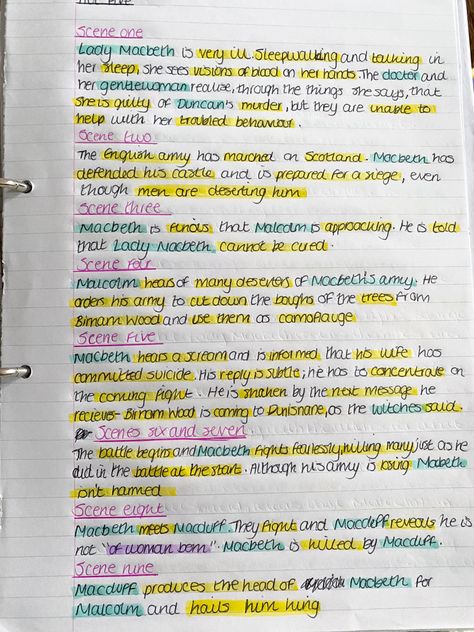 Scene one
Lady Macbeth is very ill. Sleepwalking and talking in
her sleep, she sees visions of blood on her hands. The doctor and
her gentlewoman realize, through the things she says, that
she is guilty of Duncan's murder, but they are unable to
help with her troubled behaviour.
Scene two
The English army has marched on Scotland. Macbeth has
defended his castle and is prepared for a siege, even
though men are deserting him
Scene three
Macbeth is furious that Malcolm is approaching. He is told
that Lady Macbeth cannot be cured.
Scene four
Malcolm hears of many deserters of Macbeth's army. He
orders his army to cut down the boughs of the trees from
Birnam Wood and use them as camoflauge
Scene Five
Macbeth hears a scream and is informed that his wife has
committed suicide. His reply is subtle; he has to concentrate on
the coming fight. He is shaken by the next message he
recieves- Birnam Wood is coming to Dunsinane, as the witches said.
Scenes six and seven
The battle begins and Macbeth fights fearlessly, killing many just as he
did in the battle at the start. Although his army is losing Macbeth
isn't harmed
Scene eight
Macbeth meets Macduff. They fight and Macduff reveals he is
not "of woman born". Macbeth is killed by Macduff.
Scene nine
Macduff produces the head of Macbeth for
Malcolm and hails him king